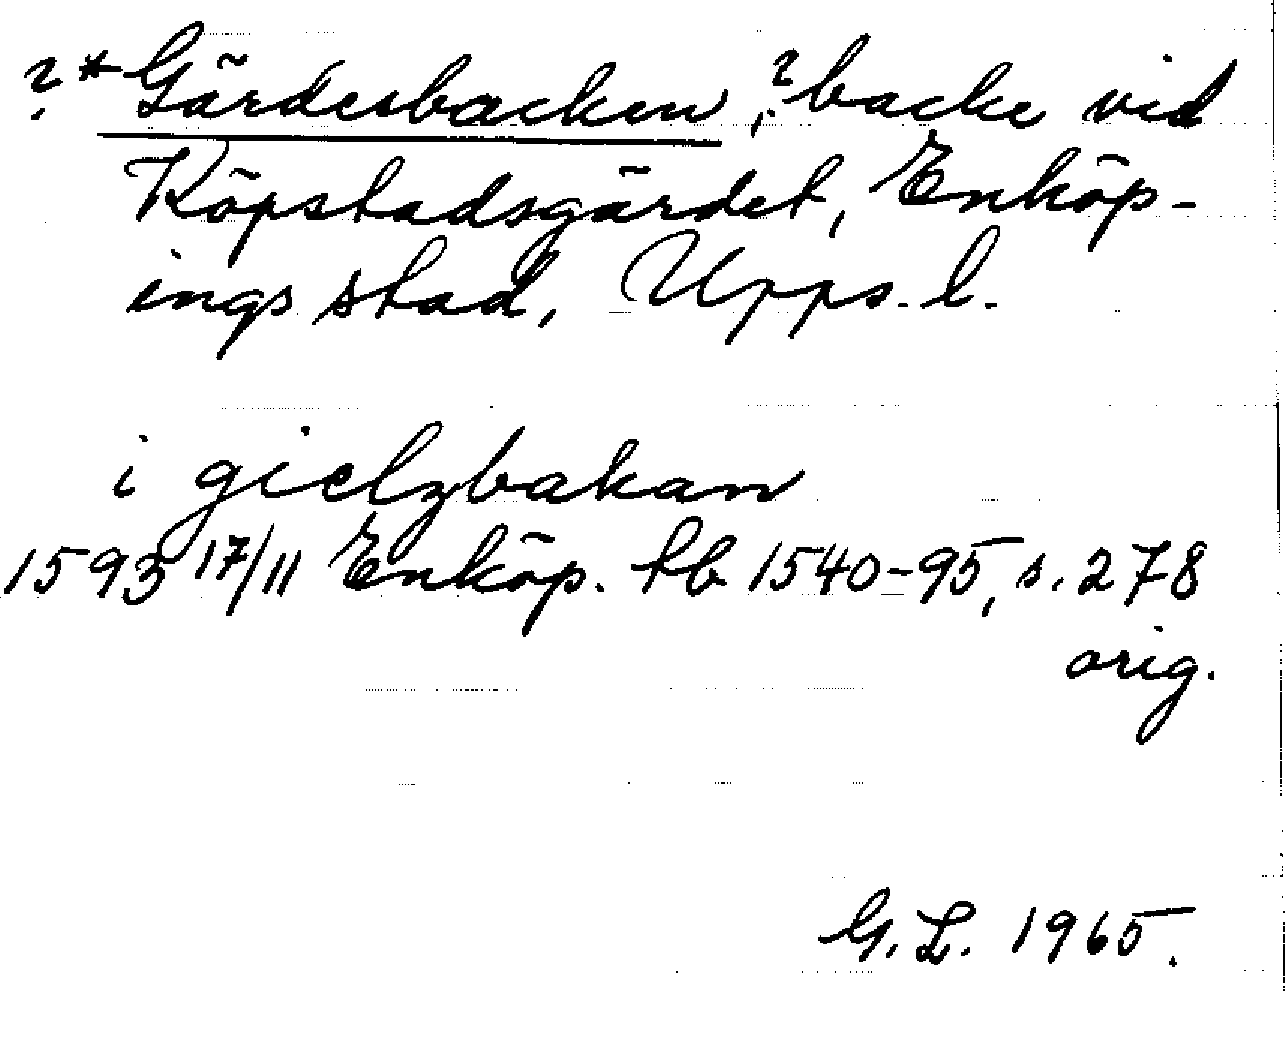 ?*Gärdesbacken, ?backe vid
Köpstadsgärdet, Enköp-
ings stad, Upps. l.
i gielzbakan
1593 17/11 Enköp. tb 1540-95, s. 278
orig.
G. L. 1965.